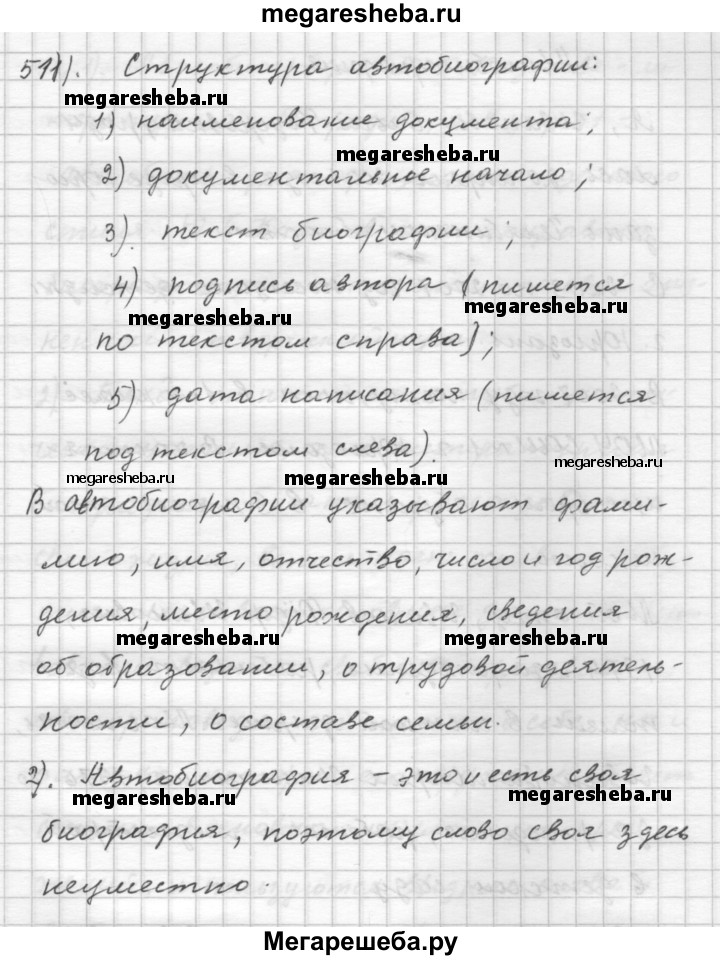 megaresheba.ru
511). Структура автобиографии:
megaresheba.ru
1) наименование документа;
megaresheba.ru
2) документальное начало;
3). текст биографии;
4) подпись автора (пишется
megaresheba.ru
megaresheba.ru
по текстом справа);
5) дата написания (пишется
megaresheba.ru
megaresheba.ru
под текстом слева).
megaresheba.ru
megaresheba.ru
megaresheba.ru
В автобиографии указывают фами-
лию, имя, отчество, число и год рож-
дения, место рождения, сведения
megaresheba.ru
megaresheba.ru
об образовании, о трудовой деятель-
ности, о составе семьи.
2). Автобиография – это и есть своя
megaresheba.ru
megaresheba.ru
биография, поэтому слово своя здесь
неуместно.
Мегарешеба.ру